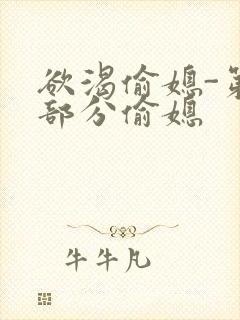 欲渴偷媳-第
部分偷媳
牛牛凡